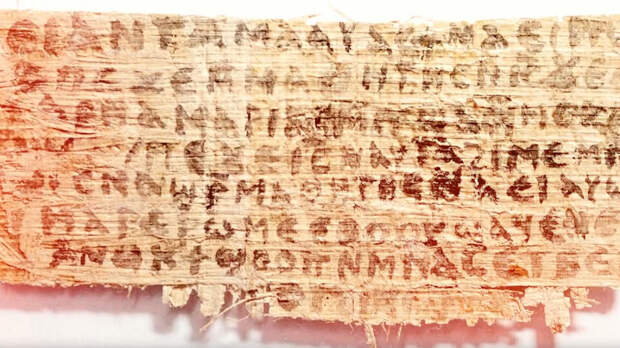 ⲉⲓ ⲁⲛ ⲧⲁⲙⲁⲁⲩ ⲁⲥϯ ⲛⲁⲉⲓ
ⲡⲉϫⲉ ⲙⲙⲁⲑⲏⲧⲏⲥ ⲛⲓⲥ ϫⲉ
ⲁⲣⲛⲁ ⲙⲁⲣⲓⲁⲙ ⲙⲡϣⲁ ⲙⲙⲟⲥ
ⲡⲉϫⲉ ⲓⲥ ⲛⲁⲩ ⲧⲁϩⲓⲙⲉ ⲙⲛ
ⲥⲛⲁϣⲣ ⲙⲁⲑⲏⲧⲏⲥ ⲛⲁⲉⲓ ⲁⲩⲱ
ⲙⲁⲣⲉⲣⲱⲙⲉ ⲉⲑⲟⲟⲩ ϣⲁϥⲉ ⲛⲉ
ⲁⲛⲟⲕ ϯϣⲟⲟⲡ ⲛⲙⲙⲁⲥ ⲉⲧⲃⲉ